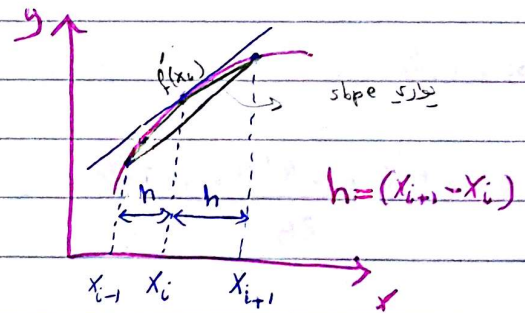 y
f'(xᵢ)
slope يوازي
h h
h=(xᵢ₊₁-xᵢ)
xᵢ₋₁ xᵢ xᵢ₊₁
x